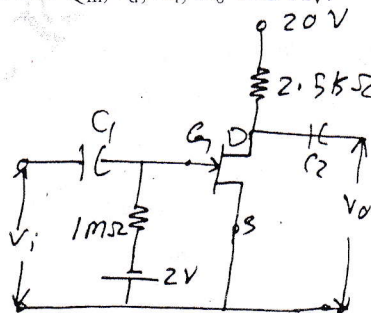 20V
2.5KΩ
C1
G
D
C2
Vi
1MΩ
S
Vo
2V